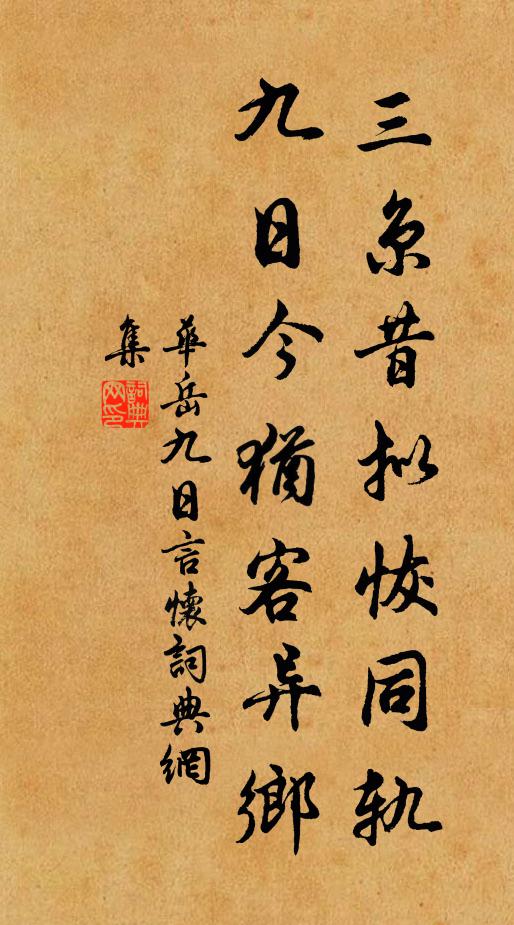 三京昔拟恢同轨
九日今犹客异鄉
華岳九日言懷詞典網
集
詞典
网印